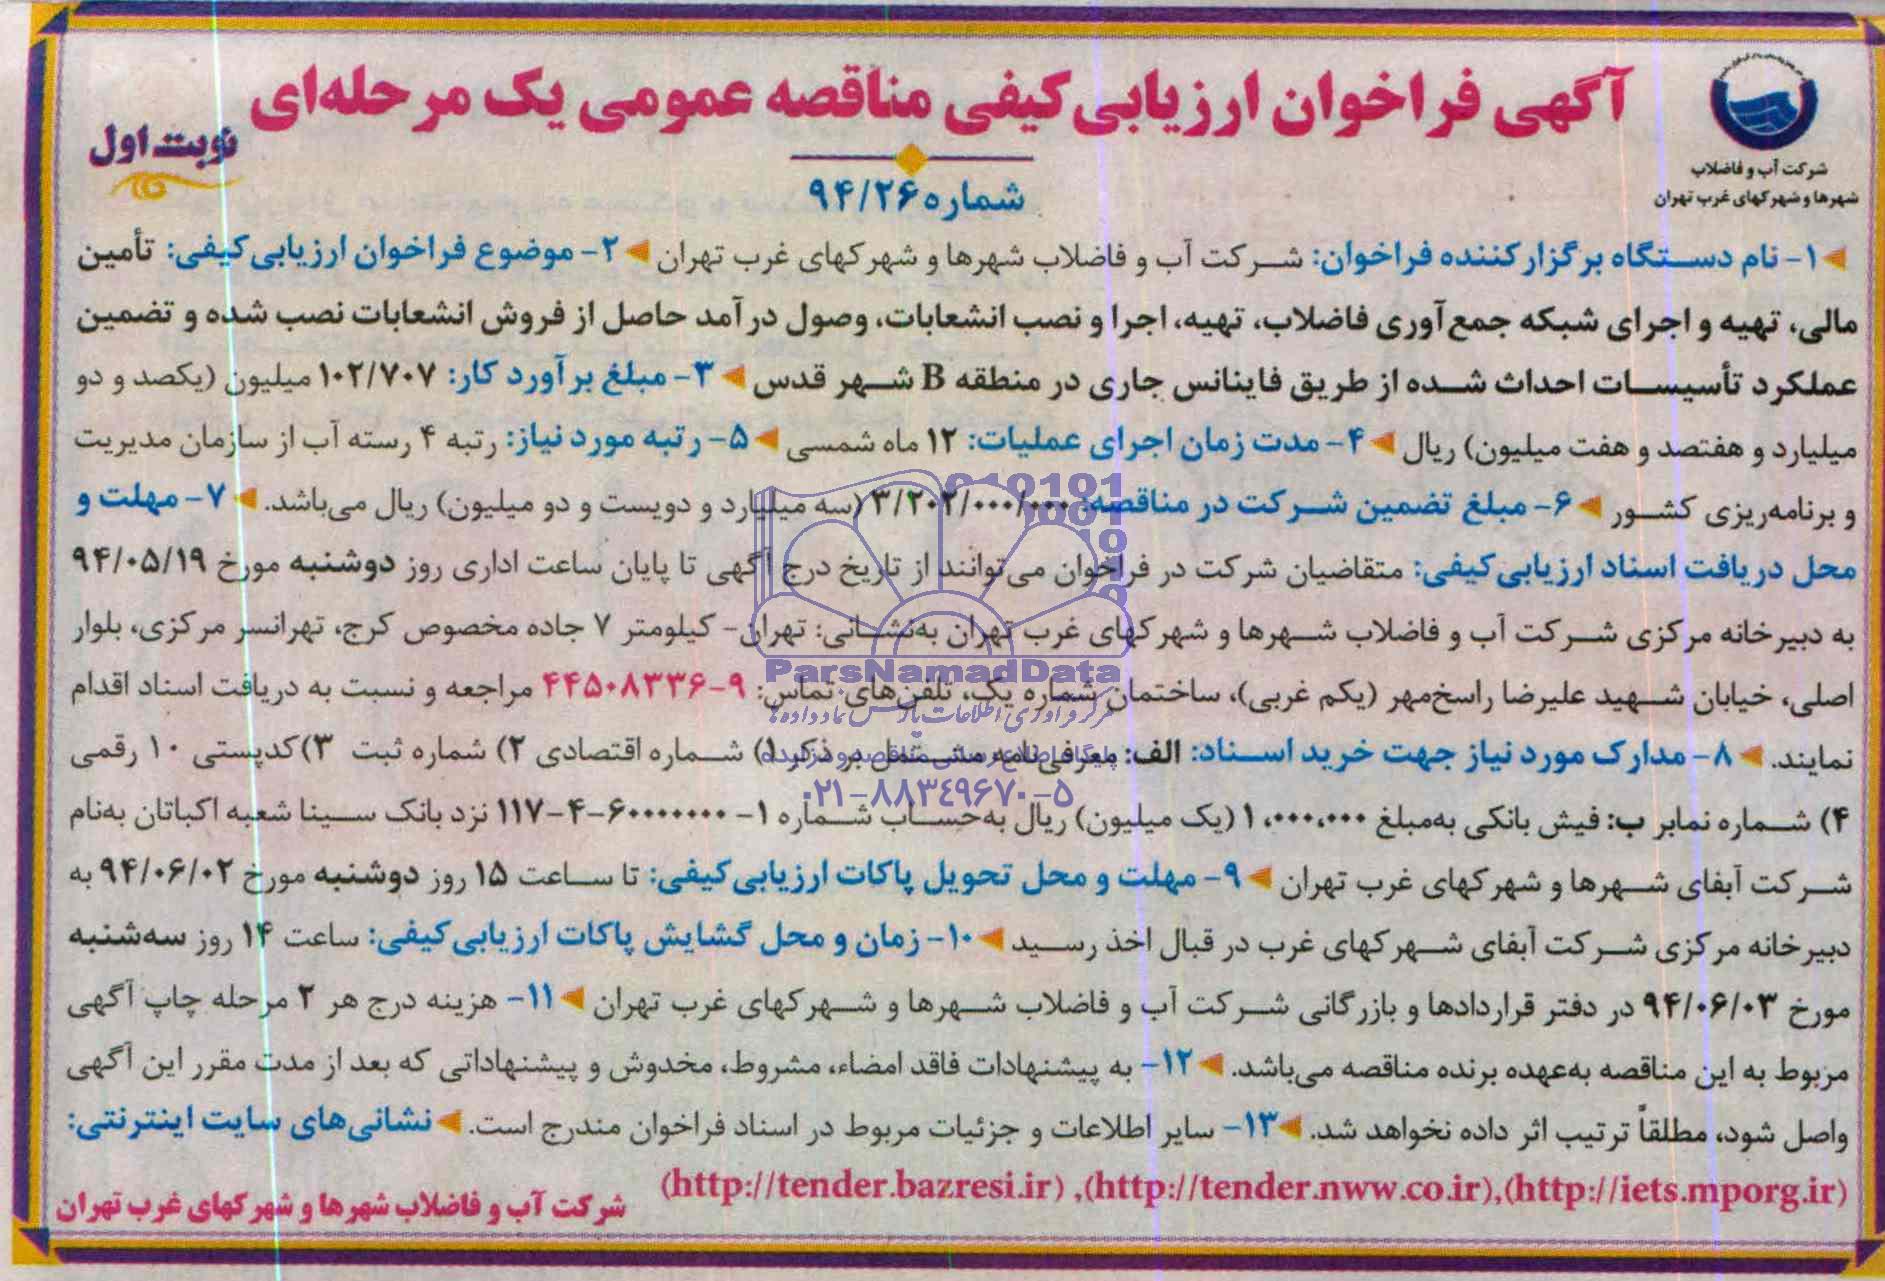 آگهی فراخوان ارزیابی کیفی مناقصه عمومی یک مرحله‌ای
نوبت اول
شرکت آب و فاضلاب
شهرها و شهرکهای غرب تهران
شماره ۹۴/۲۶
۱- نام دستگاه برگزارکننده فراخوان: شرکت آب و فاضلاب شهرها و شهرکهای غرب تهران ۲- موضوع فراخوان ارزیابی کیفی: تأمین
مالی، تهیه و اجرای شبکه جمع‌آوری فاضلاب، تهیه، اجرا و نصب انشعابات، وصول درآمد حاصل از فروش انشعابات نصب شده و تضمین
عملکرد تأسیسات احداث شده از طریق فاینانس جاری در منطقه B شهر قدس ۳- مبلغ برآورد کار: ۱۰۲/۷۰۷ میلیون (یکصد و دو
میلیارد و هفتصد و هفت میلیون) ریال ۴- مدت زمان اجرای عملیات: ۱۲ ماه شمسی ۵- رتبه مورد نیاز: رتبه ۴ رسته آب از سازمان مدیریت
و برنامه‌ریزی کشور ۶- مبلغ تضمین شرکت در مناقصه: ۳/۲۰۲/۰۰۰/۰۰۰ (سه میلیارد و دویست و دو میلیون) ریال می‌باشد. ۷- مهلت و
محل دریافت اسناد ارزیابی کیفی: متقاضیان شرکت در فراخوان می‌توانند از تاریخ درج آگهی تا پایان ساعت اداری روز دوشنبه مورخ ۹۴/۰۵/۱۹
به دبیرخانه مرکزی شرکت آب و فاضلاب شهرها و شهرکهای غرب تهران به‌نشانی: تهران- کیلومتر ۷ جاده مخصوص کرج، تهرانسر مرکزی، بلوار
اصلی، خیابان شهید علیرضا راسخ‌مهر (یکم غربی)، ساختمان شماره یک، تلفن‌های تماس: ۹-۴۴۵۰۸۳۳۶ مراجعه و نسبت به دریافت اسناد اقدام
نمایند. ۸- مدارک مورد نیاز جهت خرید اسناد: الف: معرفی‌نامه مشتمل بر ذکر ۱) شماره اقتصادی ۲) شماره ثبت ۳) کدپستی ۱۰ رقمی
۴) شماره نمابر ب: فیش بانکی به‌مبلغ ۱،۰۰۰،۰۰۰ (یک میلیون) ریال به‌حساب شماره ۱-۶۰۰۰۰۰۰۰-۴-۱۱۷ نزد بانک سینا شعبه اکباتان به‌نام
شرکت آبفای شهرها و شهرکهای غرب تهران ۹- مهلت و محل تحویل پاکات ارزیابی کیفی: تا ساعت ۱۵ روز دوشنبه مورخ ۹۴/۰۶/۰۲ به
دبیرخانه مرکزی شرکت آبفای شهرکهای غرب در قبال اخذ رسید ۱۰- زمان و محل گشایش پاکات ارزیابی کیفی: ساعت ۱۴ روز سه‌شنبه
مورخ ۹۴/۰۶/۰۳ در دفتر قراردادها و بازرگانی شرکت آب و فاضلاب شهرها و شهرکهای غرب تهران ۱۱- هزینه درج هر ۲ مرحله چاپ آگهی
مربوط به این مناقصه به‌عهده برنده مناقصه می‌باشد. ۱۲- به پیشنهادات فاقد امضاء، مشروط، مخدوش و پیشنهاداتی که بعد از مدت مقرر این آگهی
واصل شود، مطلقاً ترتیب اثر داده نخواهد شد. ۱۳- سایر اطلاعات و جزئیات مربوط در اسناد فراخوان مندرج است. نشانی‌های سایت اینترنتی:
(http://tender.bazresi.ir) ,(http://tender.nww.co.ir),(http://iets.mporg.ir)
شرکت آب و فاضلاب شهرها و شهرکهای غرب تهران
ParsNamadData
مرکز فرآوری اطلاعات پارس نماد داده‌ها
۰۲۱-۸۸۳۴۹۶۷۰-۵